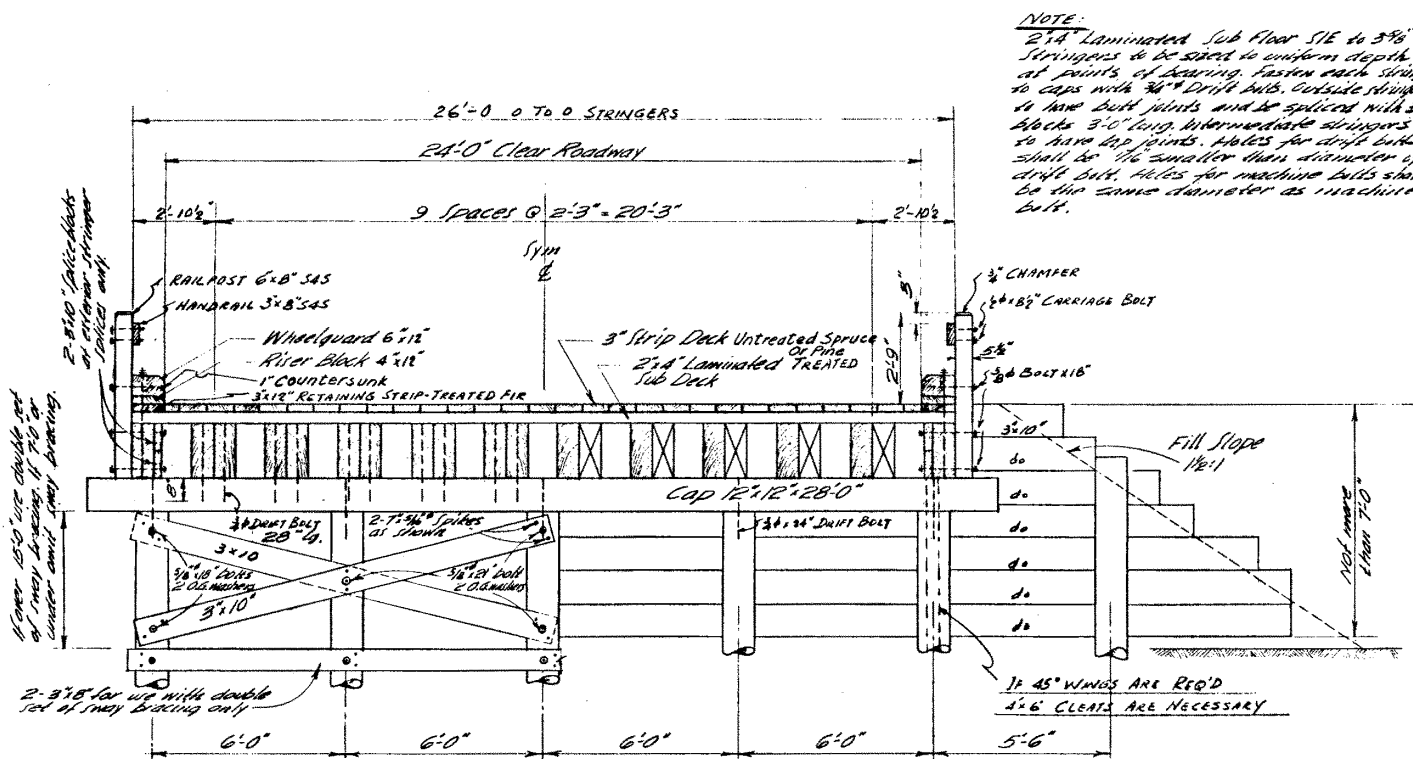 NOTE:
2"x4" Laminated Sub Floor S1E to 3 5/8"
Stringers to be sized to uniform depth
at points of bearing. Fasten each
to caps with 3/4"ϕ Drift bolts. Outside
to have butt joints and be spliced with
blocks 3'-0" long. Intermediate stringers
to have lap joints. Holes for drift bolts
shall be 1/16 smaller than diameter
drift bolt. Holes for machine bolts
be the same diameter as machine
bolt.
26'-0 O TO O STRINGERS
24'-0" Clear Roadway
2'-10 1/2"
9 Spaces @ 2'-3" = 20'-3"
2'-10 1/2
Sym
℄
2-8"x10" Splice blocks
at exterior stringer
splices only.
RAILPOST 6"x8" S4S
HANDRAIL 3"x8" S4S
Wheelguard 6"x12"
Riser Block 4"x12"
1" Countersunk
3"x12" RETAINING STRIP-TREATED FIR
3" Strip Deck Untreated Spruce
Or Pine
2"x4" Laminated TREATED
Sub Deck
3"
2'-9"
3/4" CHAMFER
1/2ϕ x 8 1/2" CARRIAGE BOLT
5 1/2"
5/8ϕ BOLT x 18"
3"x10"
do
do
do
do
do
do
Fill Slope
1 1/2:1
Not more
than 7'-0"
If over 15'-0" use double set
of sway bracing. If 7'-0" or
under omit sway bracing.
8"
Cap 12"x12"x28'-0"
3/4ϕ DRIFT BOLT
28" Lg.
2-7"x5/16"ϕ Spikes
as shown
3/4ϕ x 24" DRIFT BOLT
3"x10
5/8"ϕ x 18" bolts
2 O.G. washers
5/8"ϕ x 21" bolt
2 O.G. washers
3"x10"
2-3"x8" for use with double
set of sway bracing only
IF 45° WINGS ARE REQ'D
4"x6" CLEATS ARE NECESSARY
6'-0"
6'-0"
6'-0"
6'-0"
5'-6"